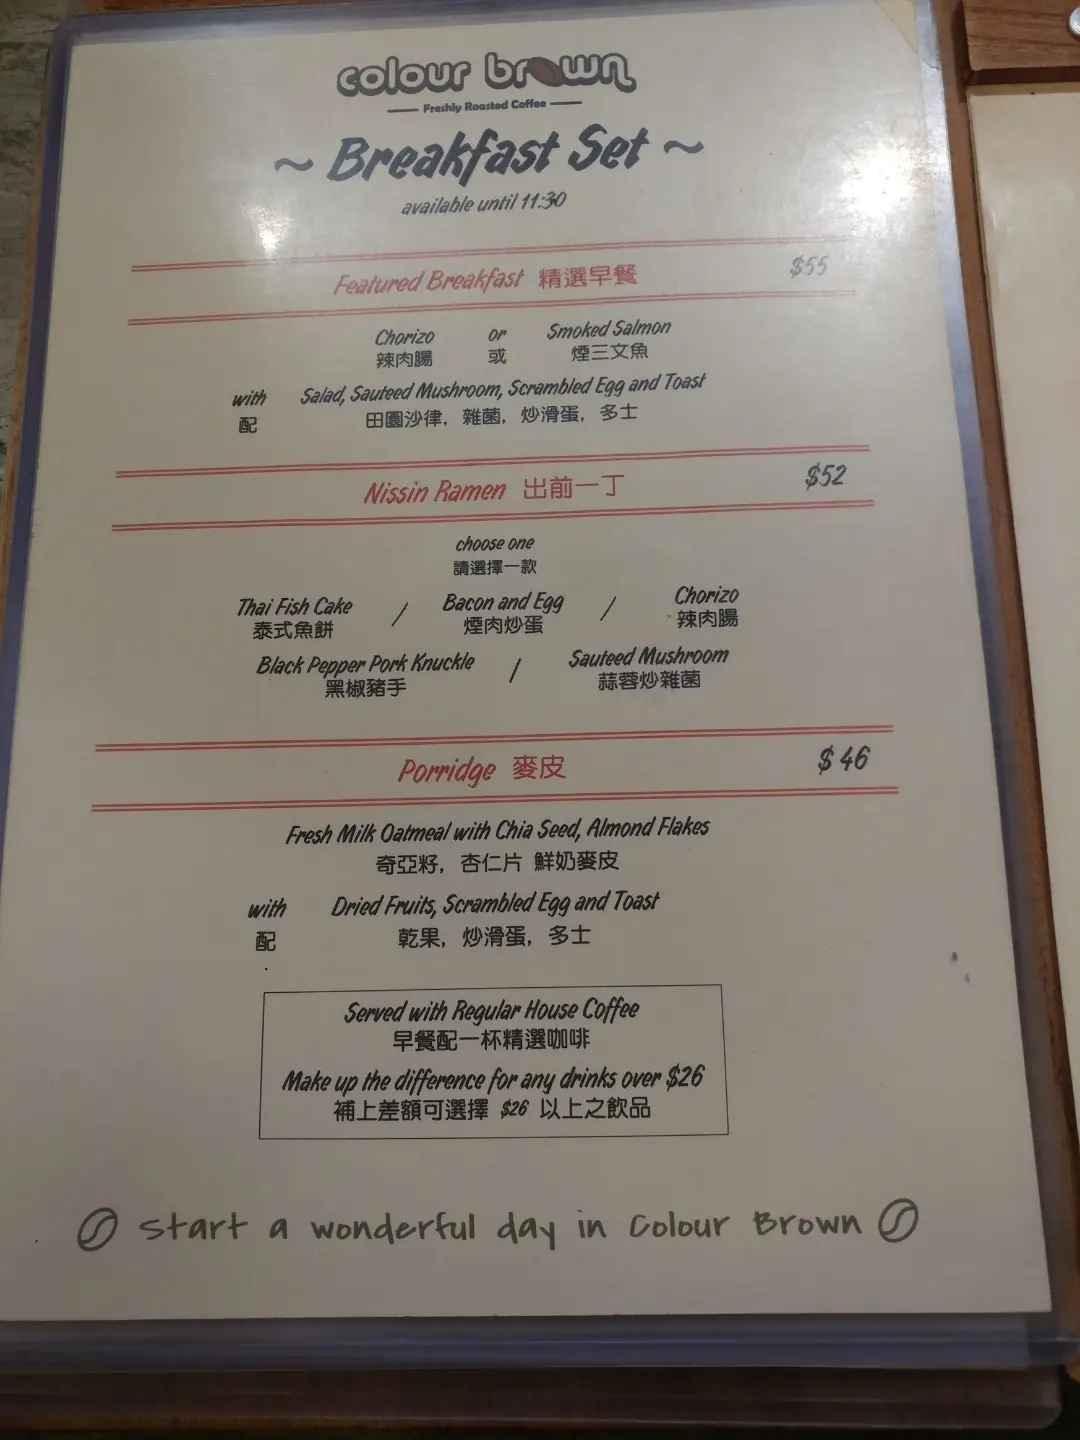 colour brown
Freshly Roasted Coffee
~ Breakfast Set ~
available until 11:30
Featured Breakfast 精選早餐 $55
Chorizo or Smoked Salmon
辣肉腸 或 煙三文魚
with Salad, Sauteed Mushroom, Scrambled Egg and Toast
配 田園沙律, 雜菌, 炒滑蛋, 多士
Nissin Ramen 出前一丁 $52
choose one
請選擇一款
Thai Fish Cake / Bacon and Egg / Chorizo
泰式魚餅 煙肉炒蛋 辣肉腸
Black Pepper Pork Knuckle / Sauteed Mushroom
黑椒豬手 蒜蓉炒雜菌
Porridge 麥皮 $46
Fresh Milk Oatmeal with Chia Seed, Almond Flakes
奇亞籽, 杏仁片 鮮奶麥皮
with Dried Fruits, Scrambled Egg and Toast
配 乾果, 炒滑蛋, 多士
Served with Regular House Coffee
早餐配一杯精選咖啡
Make up the difference for any drinks over $26
補上差額可選擇 $26 以上之飲品
Start a wonderful day in Colour Brown